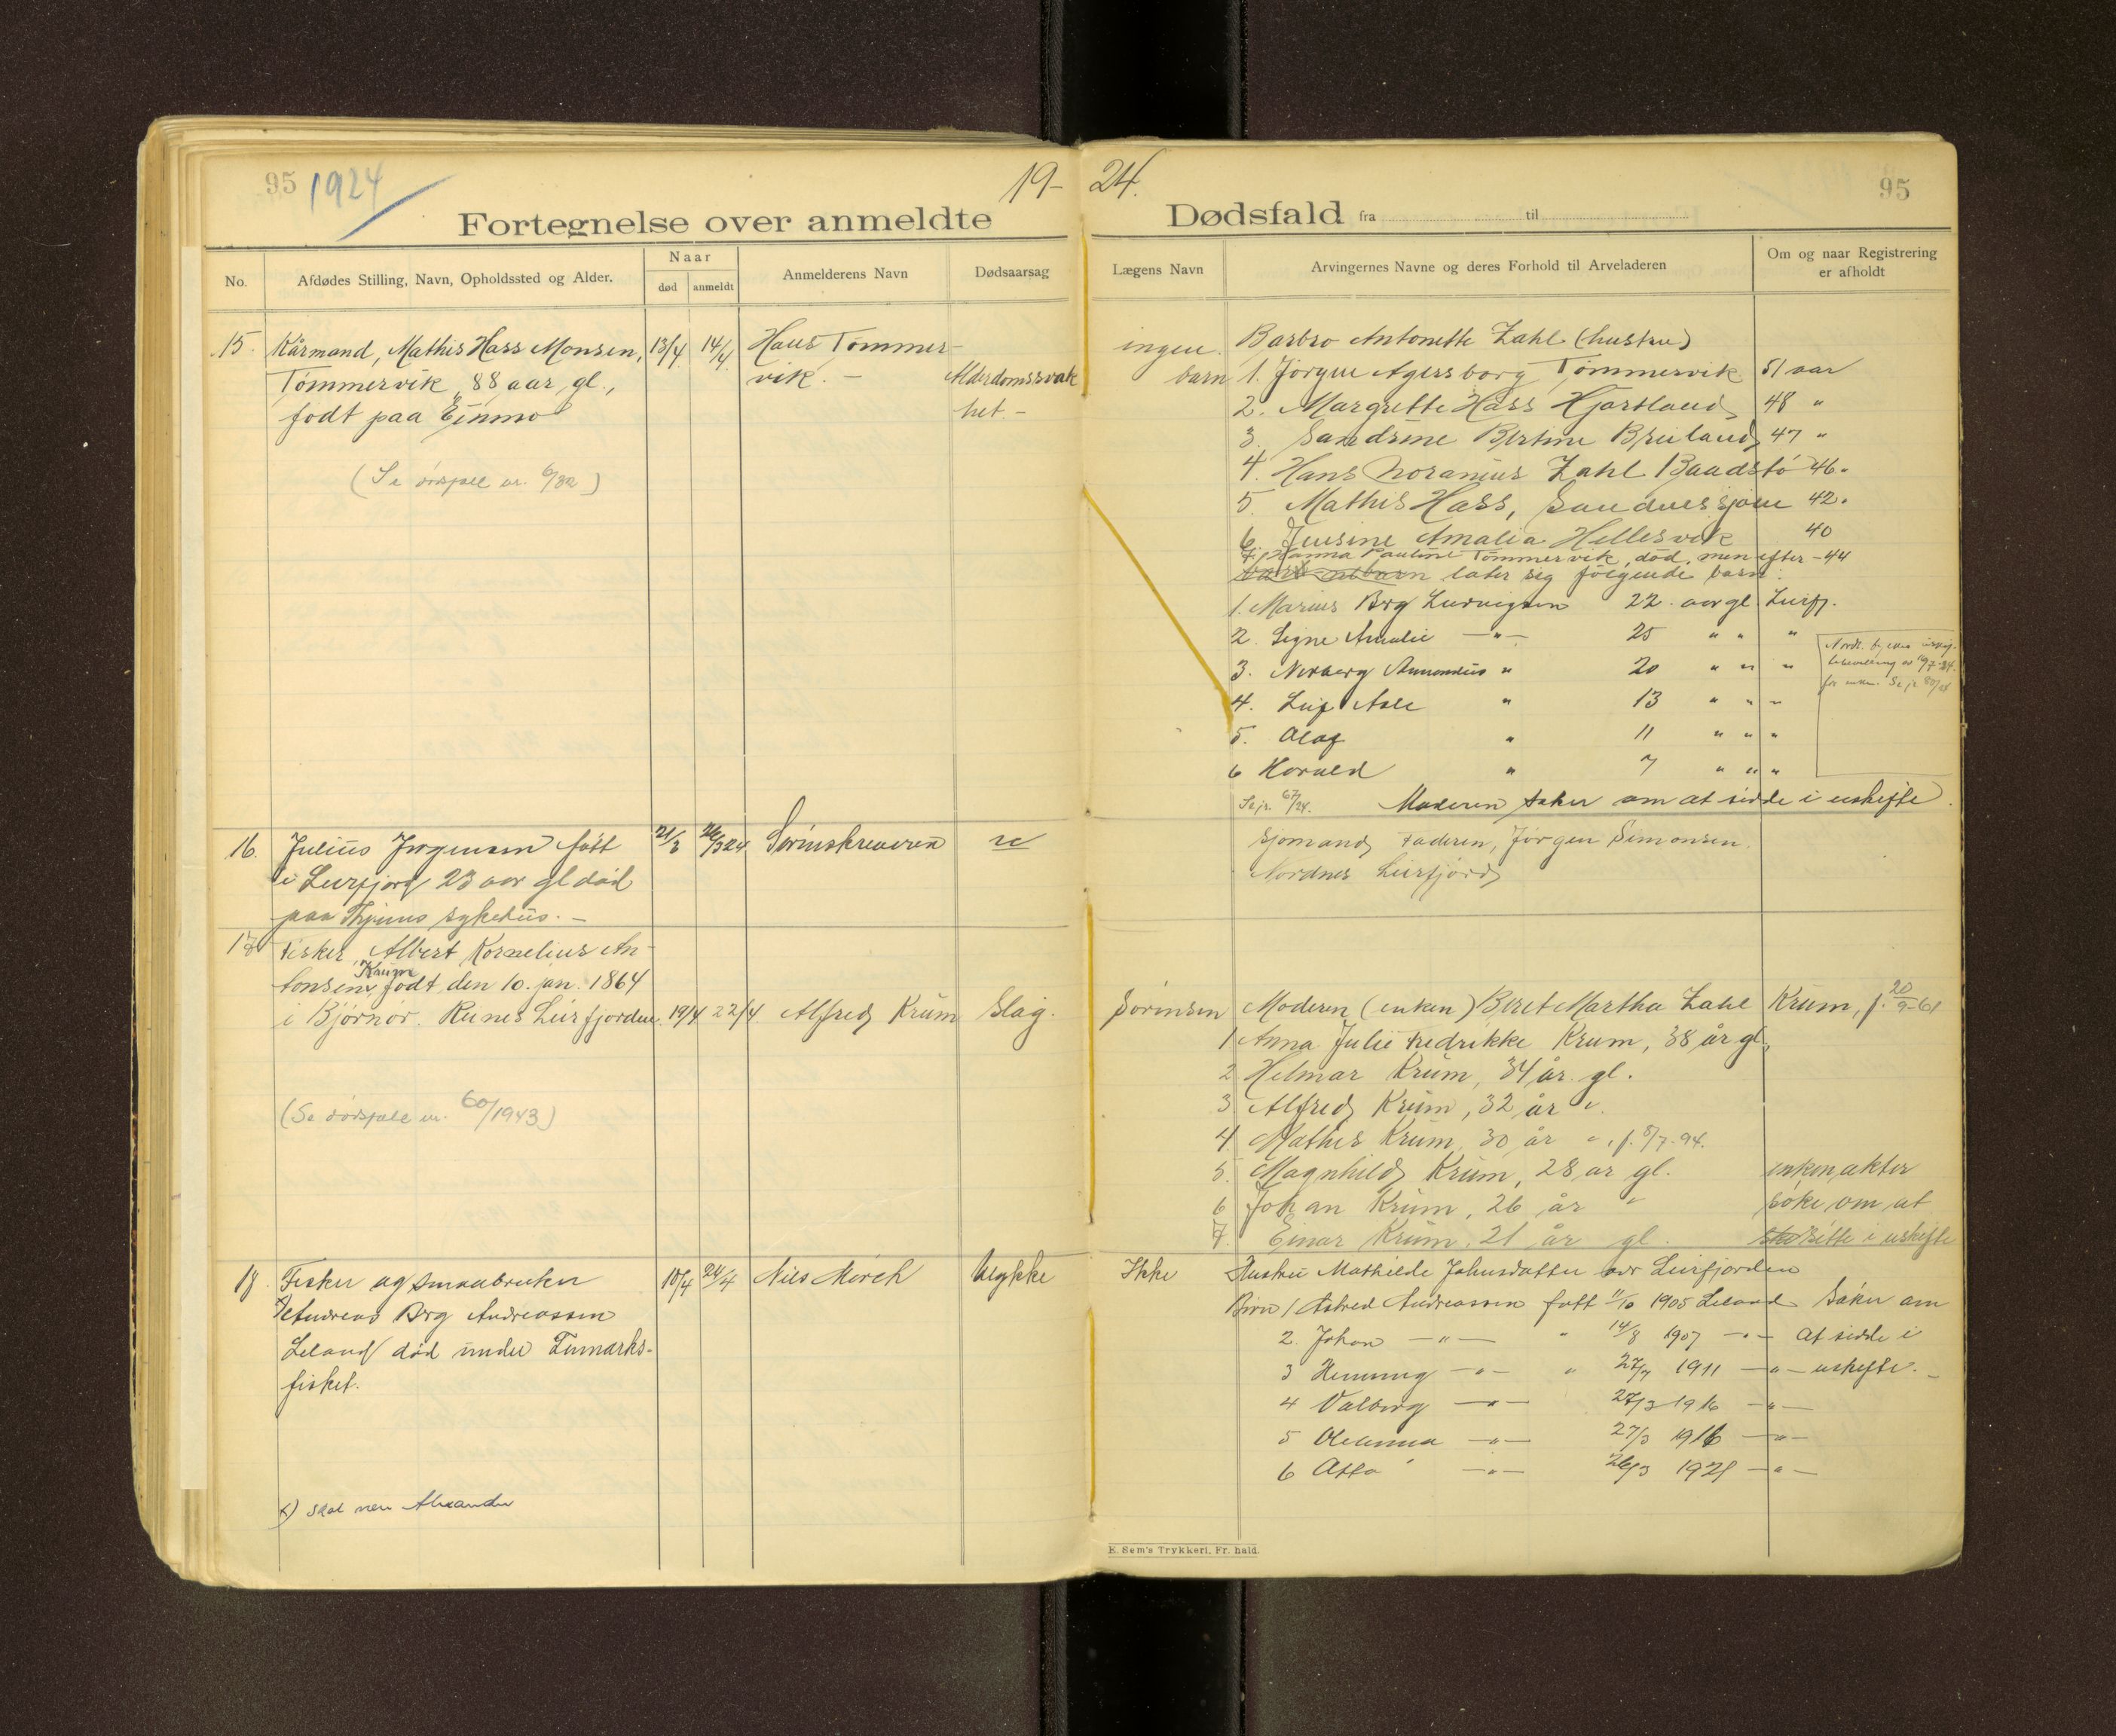 95 1924
19- 24.
95
Fortegnelse over anmeldte Dødsfald fra til
No.
Afdødes Stilling, Navn, Opholdssted og Alder.
Naar
død anmeldt
Anmelderens Navn
Dødsaarsag
Lægens Navn
Arvingernes Navne og deres Forhold til Arveladeren
Om og naar Registrering
er afholdt
15. Kårmand, Mathis Hass Monsen, 13/4 14/4 Hans Tømmer-
Tømmervik, 88 aar gl., vik. - Alderdomssvak
født paa Einmo het. -
(Se dødsfall nr. 6/32)
ingen Barbro Antonette Zahl (hustru)
barn 1. Jørgen Agersborg Tømmervik 51 aar
2. Margrethe Hass Hjartland 48 "
3. Sandrine Bertine Breiland 47 "
4. Hans Noranius Zahl Baadstø 46.
5. Mathis Hass, Sandnessjøen 42.
6. Jensine Amalia Hellesvik 40
7. Hanna Pauline Tømmervik, død, men efter - 44
later sig følgende barn:
1. Marius Brg Ludvigsen 22 aar gl Leirfj.
2. Signe Amalie - " - 25 " " "
3. Norberg Amandius " 20 " " "
4. Leif Asle " 13 " " "
5. Olaf " 11 " " "
6 Harald " 7 " " "
Se jr. 67/24. Moderen søker om at sidde i uskifte.
16. Julius Jørgensen født 21/3 26/3 24 Sorenskriveren
i Leirfjord 23 aar gl død
paa sykehus. -
Sjømand, Faderen, Jørgen Simonsen.
Nordnes Leirfjord
17 Fisker, Albert Kornelius An-
tonsen Krum født den 10. jan. 1864
i Bjørnør. Runes Leirfjorden. 19/4 22/4 Alfred Krum Slag.
(Se dødsfall nr. 60/1943)
Sørensen Moderen (enken) Beret Martha Zahl Krum, f. 20/9-61
1 Anna Julie Fredrikke Krum, 38 år gl.
2 Helmar Krum, 34 år gl.
3 Alfred Krum, 32 år "
4. Mathis Krum, 30 år ", f. 8/7-94.
5. Magnhild Krum, 28 ar gl. enken akter
6 Johan Krum, 26 år " søke om at
7. Einar Krum, 21 år gl. sitte i uskifte
18. Fisker og smaabruker 10/4 24/4 Nils Mørch Ulykke
x) Andreas Brg Andreassen
Leland død under Finmarks-
fisket.
x) skal være Alexander
Ikke Hustru Mathilde Johnsdatter av Leirfjorden
Børn 1 Astred Andreassen født 11/10 1905 Leland Søker om
2. Johan - " - " 14/8 1907 - " - at sidde i
3 Henning - " - " 27/7 1911 - " - uskifte. -
4 Valborg - " - 27/3 1916 - " -
5 Oleanna - " - 27/3 1916 - " -
6 Asta - " - 26/3 1921 - " -
E. Sem's Trykkeri, Fr. hald.